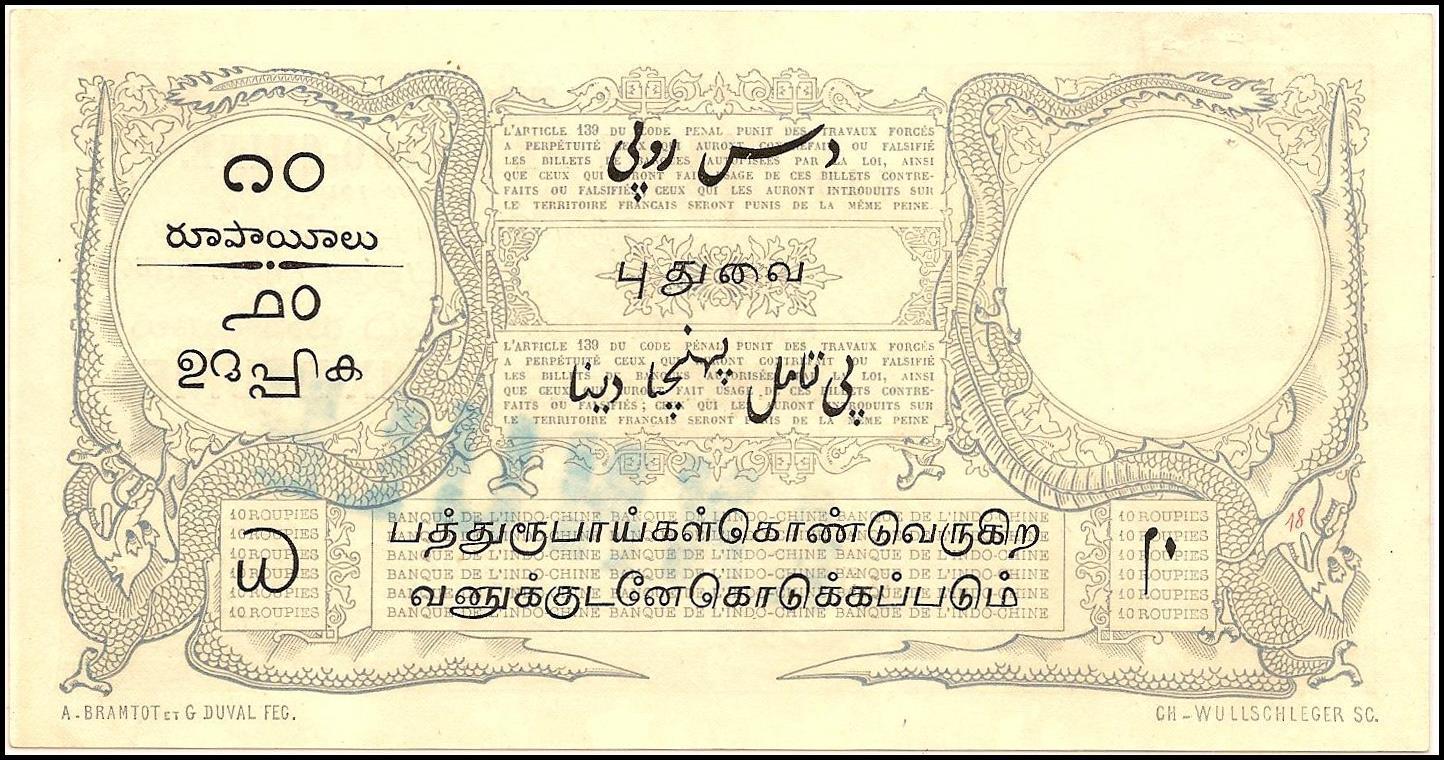 ౧౦
రూపాయీలు
൧൦
ഉറുപ്പിക
L'ARTICLE 139 DU CODE PENAL PUNIT DES TRAVAUX FORCÉS
A PERPÉTUITÉ CEUX QUI AURONT CONTREFAIT OU FALSIFIÉ
LES BILLETS DE BANQUES AUTORISÉES PAR LA LOI, AINSI
QUE CEUX QUI AURONT FAIT USAGE DE CES BILLETS CONTRE-
FAITS OU FALSIFIÉS; CEUX QUI LES AURONT INTRODUITS SUR
LE TERRITOIRE FRANCAIS SERONT PUNIS DE LA MÊME PEINE.
دس روپی
புதுவை
L'ARTICLE 139 DU CODE PÉNAL PUNIT DES TRAVAUX FORCÉS
A PERPÉTUITÉ CEUX QUI AURONT CONTREFAIT OU FALSIFIÉ
LES BILLETS DE BANQUES AUTORISÉES PAR LA LOI, AINSI
QUE CEUX QUI AURONT FAIT USAGE DE CES BILLETS CONTRE-
FAITS OU FALSIFIÉS; CEUX QUI LES AURONT INTRODUITS SUR
LE TERRITOIRE FRANCAIS SERONT PUNIS DE LA MÊME PEINE
بی تامل پہنچا دینا
10 ROUPIES
10 ROUPIES
10 ROUPIES
10 ROUPIES
10 ROUPIES
10 ROUPIES
௰
BANQUE DE L'INDO-CHINE BANQUE DE L'INDO-CHINE BANQUE DE L'INDO-CHINE
BANQUE DE L'INDO-CHINE BANQUE DE L'INDO-CHINE BANQUE DE L'INDO-CHINE
BANQUE DE L'INDO-CHINE BANQUE DE L'INDO-CHINE BANQUE DE L'INDO-CHINE
BANQUE DE L'INDO-CHINE BANQUE DE L'INDO-CHINE BANQUE DE L'INDO-CHINE
BANQUE DE L'INDO-CHINE BANQUE DE L'INDO-CHINE BANQUE DE L'INDO-CHINE
BANQUE DE L'INDO-CHINE BANQUE DE L'INDO-CHINE BANQUE DE L'INDO-CHINE
பத்துரூபாய்கள்கொண்டுவருகிற
வனுக்குடனேகொடுக்கப்படும்
10 ROUPIES
10 ROUPIES
10 ROUPIES
10 ROUPIES
10 ROUPIES
10 ROUPIES
۱۰
18
A-BRAMTOT ET G DUVAL FEC.
CH-WULLSCHLEGER SC.